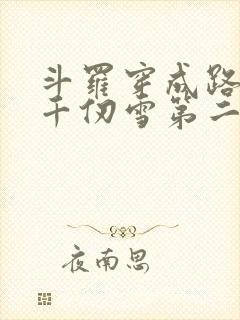 斗罗穿成路
千仞雪第二
夜南思